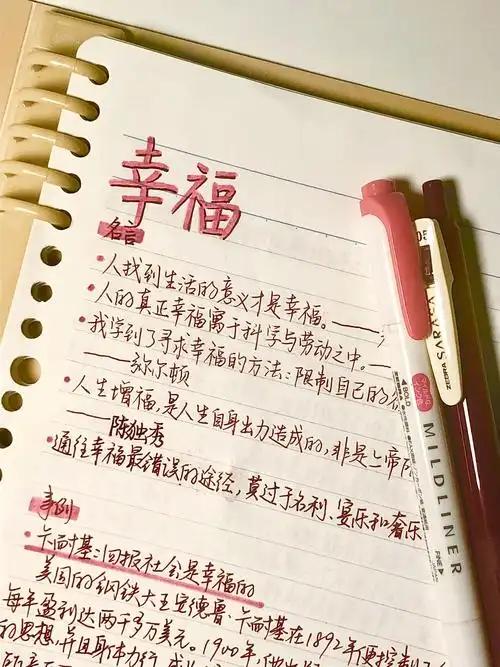 幸福
名言
•人找到生活的意义才是幸福。——
•人的真正幸福寓于科学与劳动之中。—
•我学到了寻求幸福的方法：限制自己的
——弥尔顿
•人生增福，是人生自身出力造成的，非是上帝
——陈独秀
•通往幸福最错误的途径，莫过于名利、宴乐和奢乐
事例
•卡耐基：回报社会是幸福的
美国的钢铁大王安德鲁·卡耐基在1892年便控制
每年盈利达两千多万美元。1900年，他
的思想，并且身体力行
SARASA
ZEBRA
MILDLINER
FINE